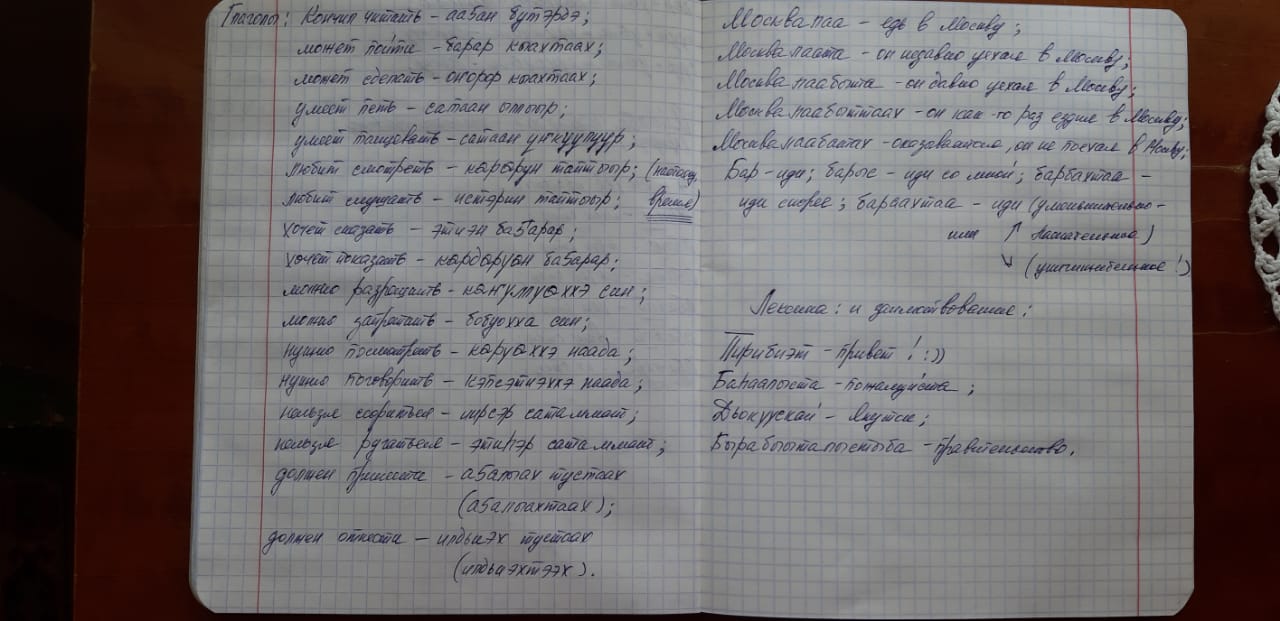 Глаголы: Кончил читать - аа5ан бутэрдэ;
может пойти - барар кыахтаах;
может сделать - онорор кыахтаах;
умеет петь - сатаан ыллыыр;
умеет танцевать - сатаан ункуулуур;
любит смотреть - корорун таптыыр; (настоящ.
любит слушать - истэрин таптыыр; время)
хочет сказать - этиэн ба5арар;
хочет показать - кордоруон ба5арар;
можно разрешать - конгулуоххэ син;
можно запретить - бобуохха син;
нужно посмотреть - коруоххэ наада;
нужно поговорить - кэпсэтиэххэ наада;
нельзя ссориться - иирсэр сатаммат;
нельзя ругаться - этиhэр сатаммат;
должен принести - а5алыах тустаах
(а5алыахтаах);
должен отнести - илдьиэх тустаах
(илдьиэхтээх).
Москвалаа - едь в Москву;
Москвалаата - он недавно уехал в Москву;
Москвалаабыта - он давно уехал в Москву;
Москвалаабыттаах - он как-то раз ездил в Москву;
Москвалаабатах - оказывается, он не поехал в Москву;
Бар - иди; барыс - иди со мной; барбахтаа -
иди скорее; бараахтаа - иди (уменьшительно-
или ↑ ласкательное)
↓ (уничижительное!)
Лексика: и заимствование:
Пирибиэт - привет! :))
Баhаалыста - пожалуйста;
Дьокуускай - Якутск;
Бырабыыталыстыба - правительство.